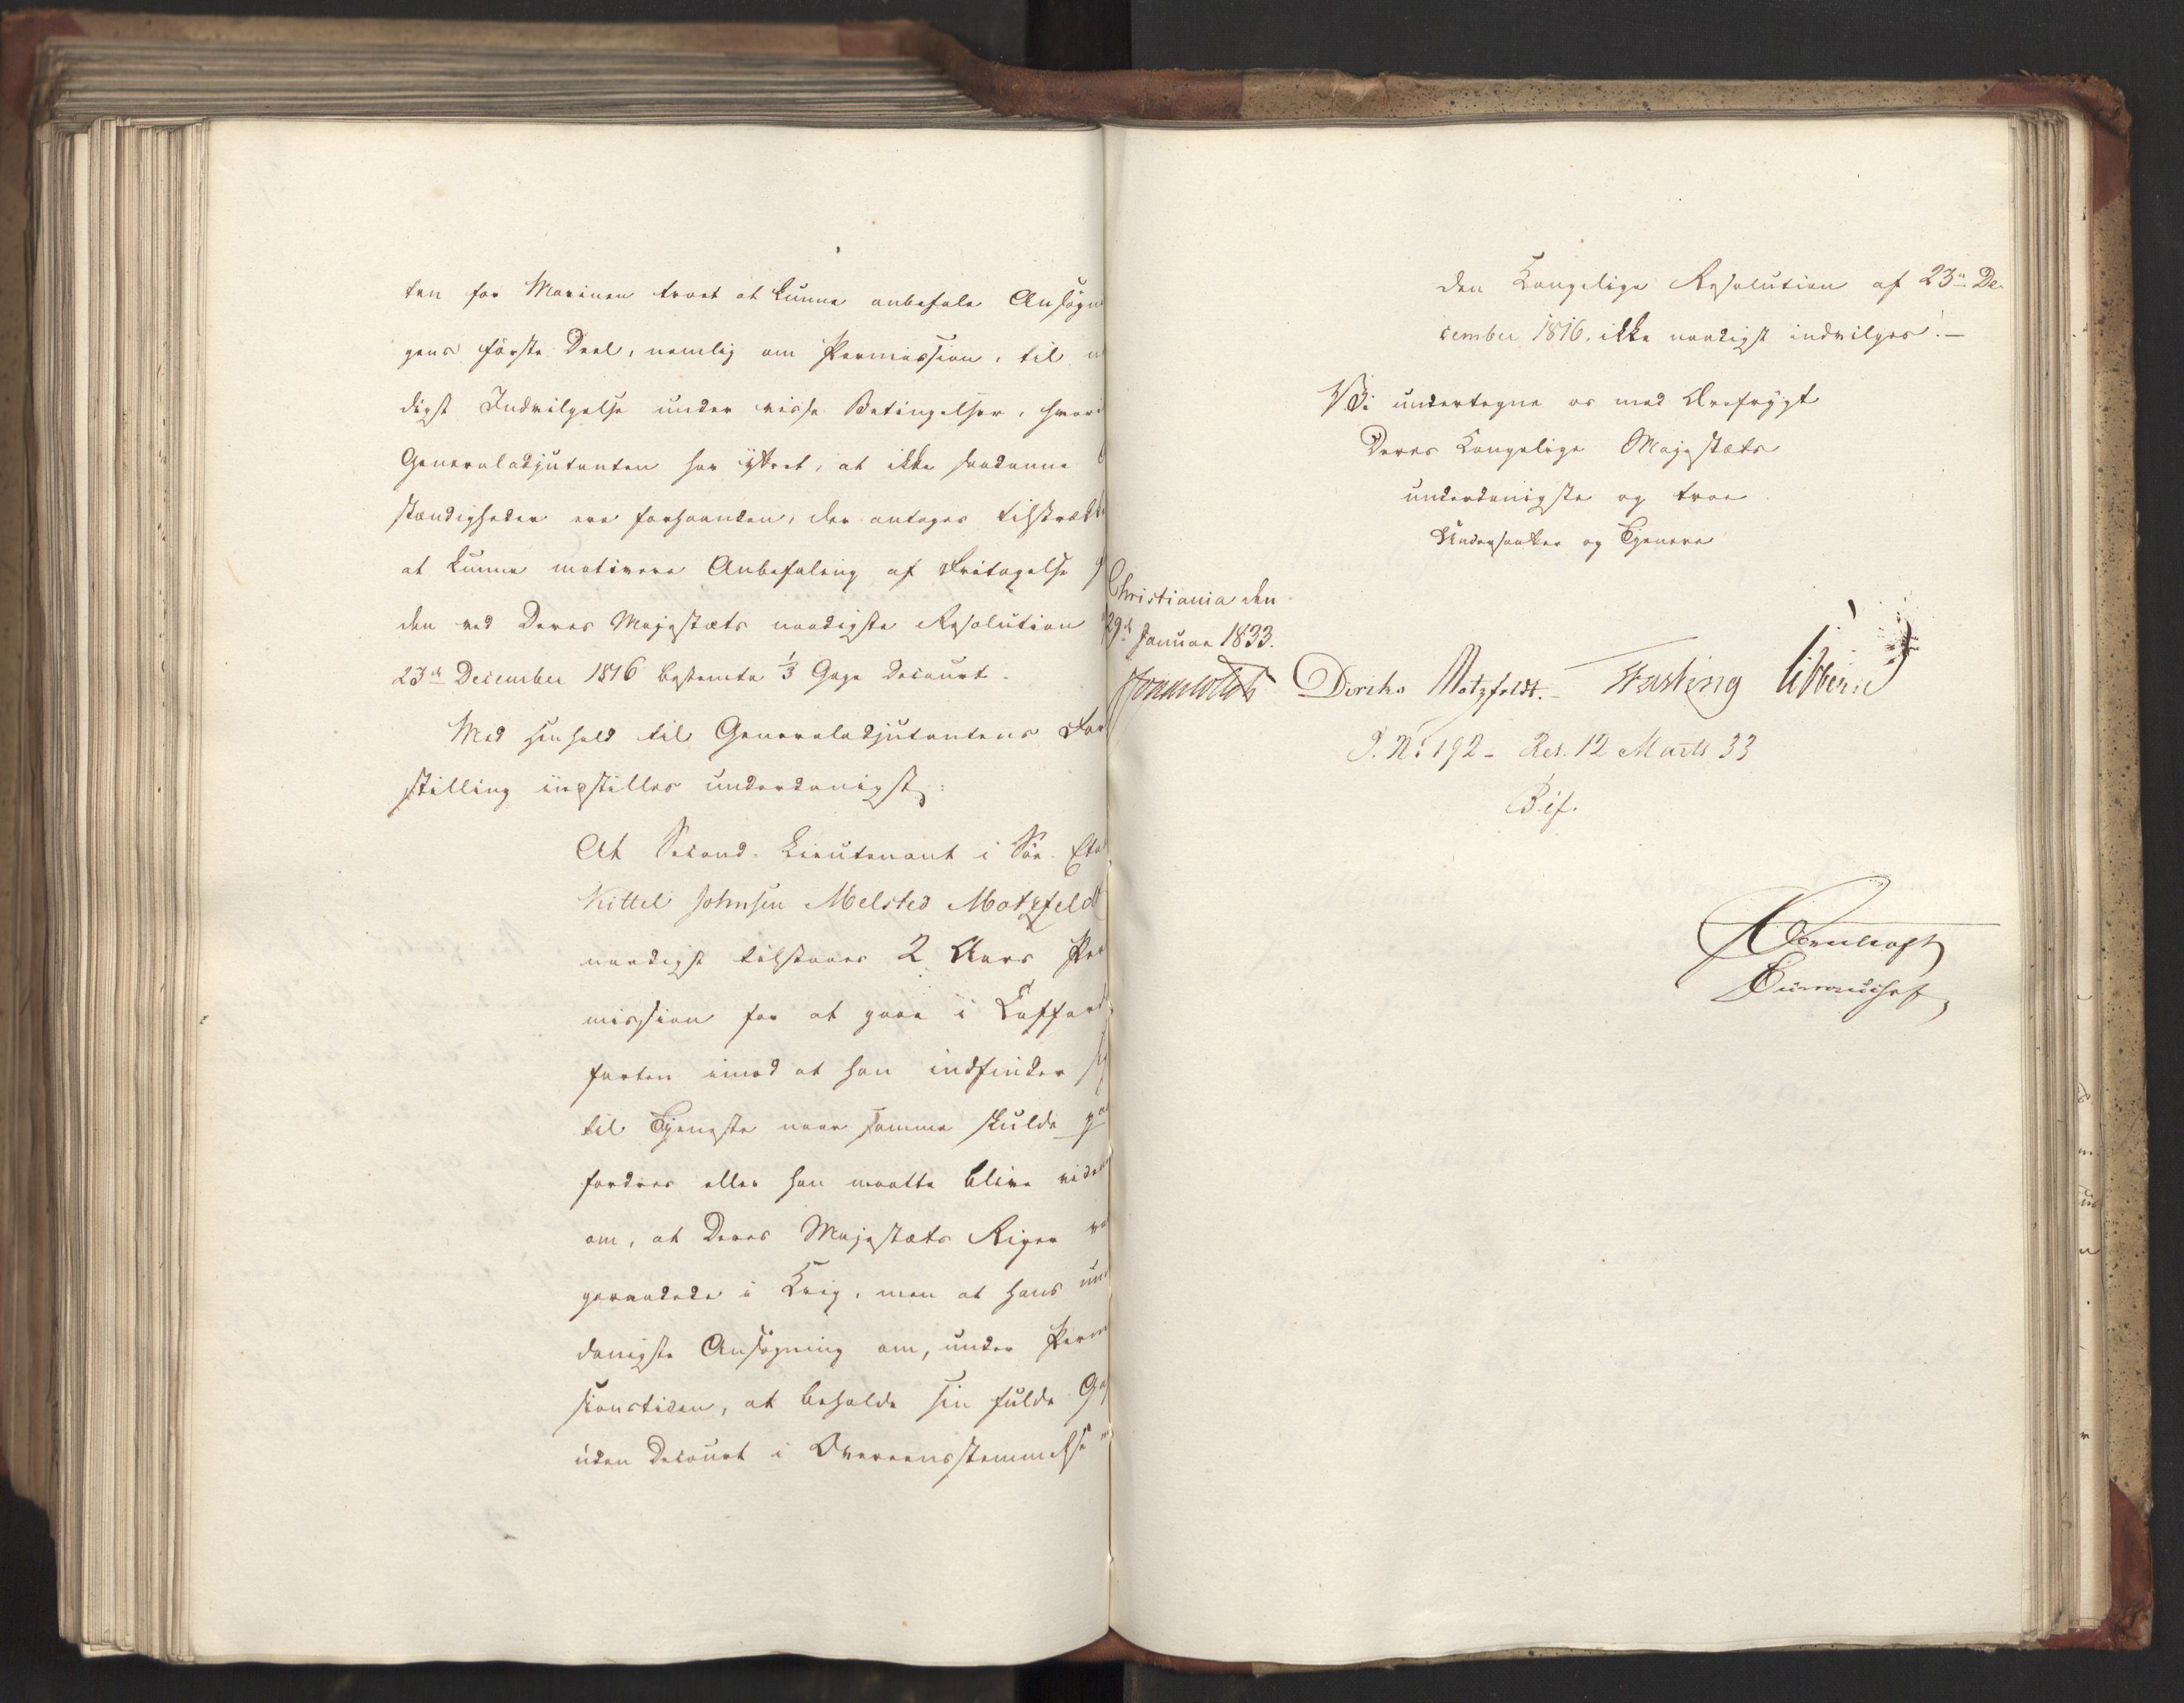 ten for Marinen troet at kunne anbefale Ansøgnin
gens første Deel, nemlig om Permission, til
digst Indvilgelse under visse Betingelser, hvori
Generaladjutanten har yttret, at ikke saadanne
stændigheder ere forhaanden, der antages tilstrække
at kunne motivere Anbefaling af Fritagelse
den ved Deres Majestæts naadigste Resolution
23de December 1816 bestemte 1/3 Gage Decourt.
Med Henhold til Generaladjutantens For
stilling indstilles underdanigst:
At Second-Lieutenant i Søe-Eta
Kittel Johnsen Melsted Motzfeldt
naadigst tilstaaes 2 Aars Per
mission for at gaae i Koffardi
farten imod at han indfinder
til Tjeneste naar samme skulde
fordres eller han maatte blive viden
om, at Deres Majestæts Riger
geraadede i Krig, men at hans un
danigste Ansøgning om, under Perm
sionstiden, at beholde sin fulde Ga
uden Decourt i Overeensstemmelse
den Kongelige Resolution af 23de De-
cember 1816, ikke naadigst indvilges.—
Vi undertegne os med Ærefrygt
Deres Kongelige Majestæts
underdanigste og troe
Undersaatter og Tjenere
Christiania den
29de Januar 1833.
Diriks Motzfeldt. Fasting Sibbern
J. No: 192 - Res. 12 Marts 33
Bif.